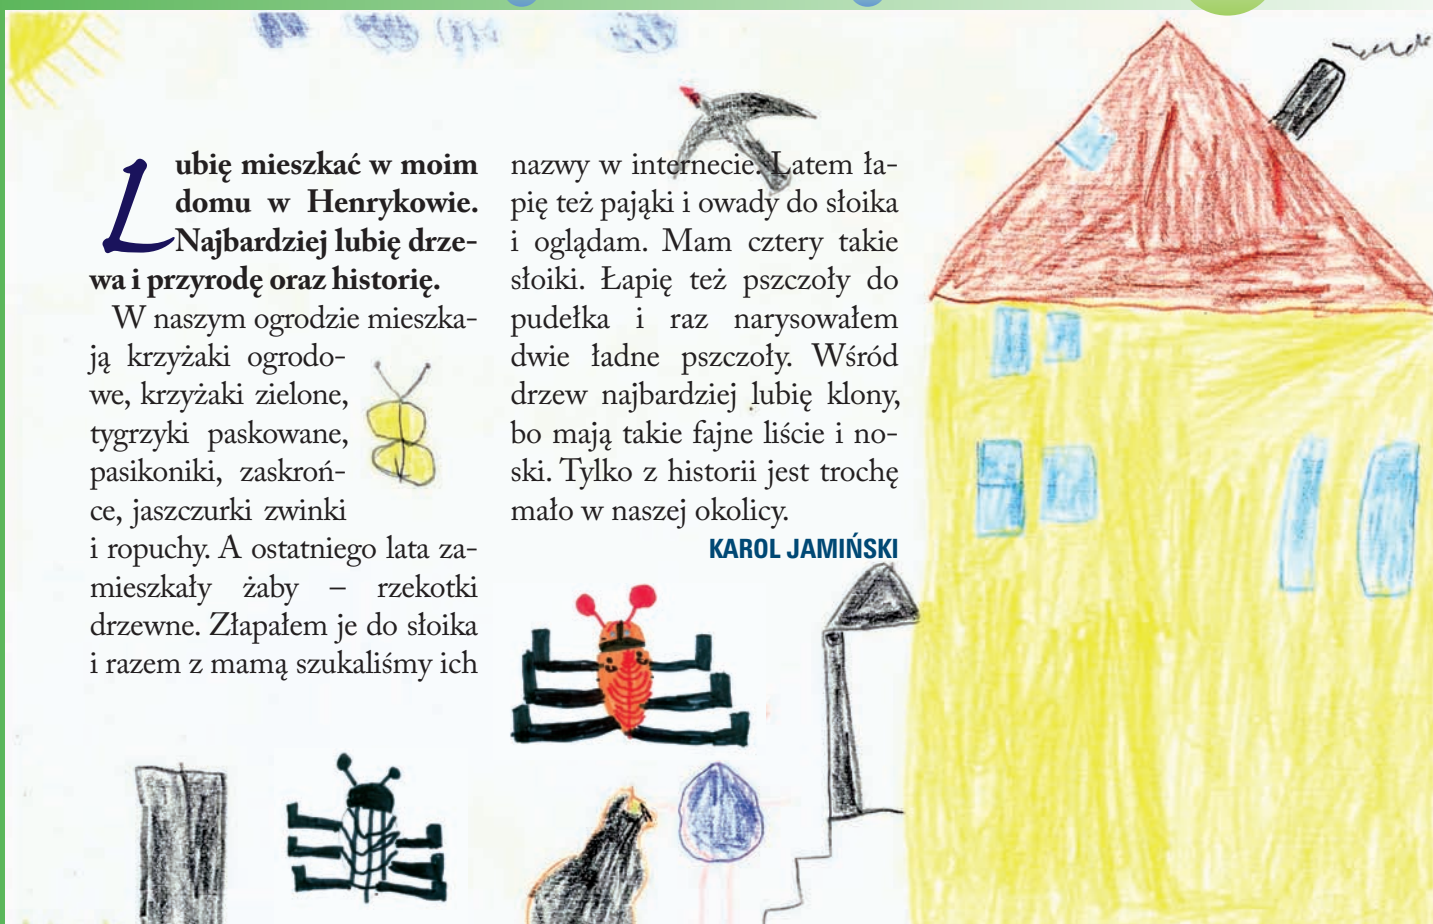 Lubię mieszkać w moim
domu w Henrykowie.
Najbardziej lubię drze-
wa i przyrodę oraz historię.
W naszym ogrodzie mieszka-
ją krzyżaki ogrodo-
we, krzyżaki zielone,
tygrzyki paskowane,
pasikoniki, zaskroń-
ce, jaszczurki zwinki
i ropuchy. A ostatniego lata za-
mieszkały żaby – rzekotki
drzewne. Złapałem je do słoika
i razem z mamą szukaliśmy ich
nazwy w internecie. Latem ła-
pię też pająki i owady do słoika
i oglądam. Mam cztery takie
słoiki. Łapię też pszczoły do
pudełka i raz narysowałem
dwie ładne pszczoły. Wśród
drzew najbardziej lubię klony,
bo mają takie fajne liście i no-
ski. Tylko z historii jest trochę
mało w naszej okolicy.
KAROL JAMIŃSKI